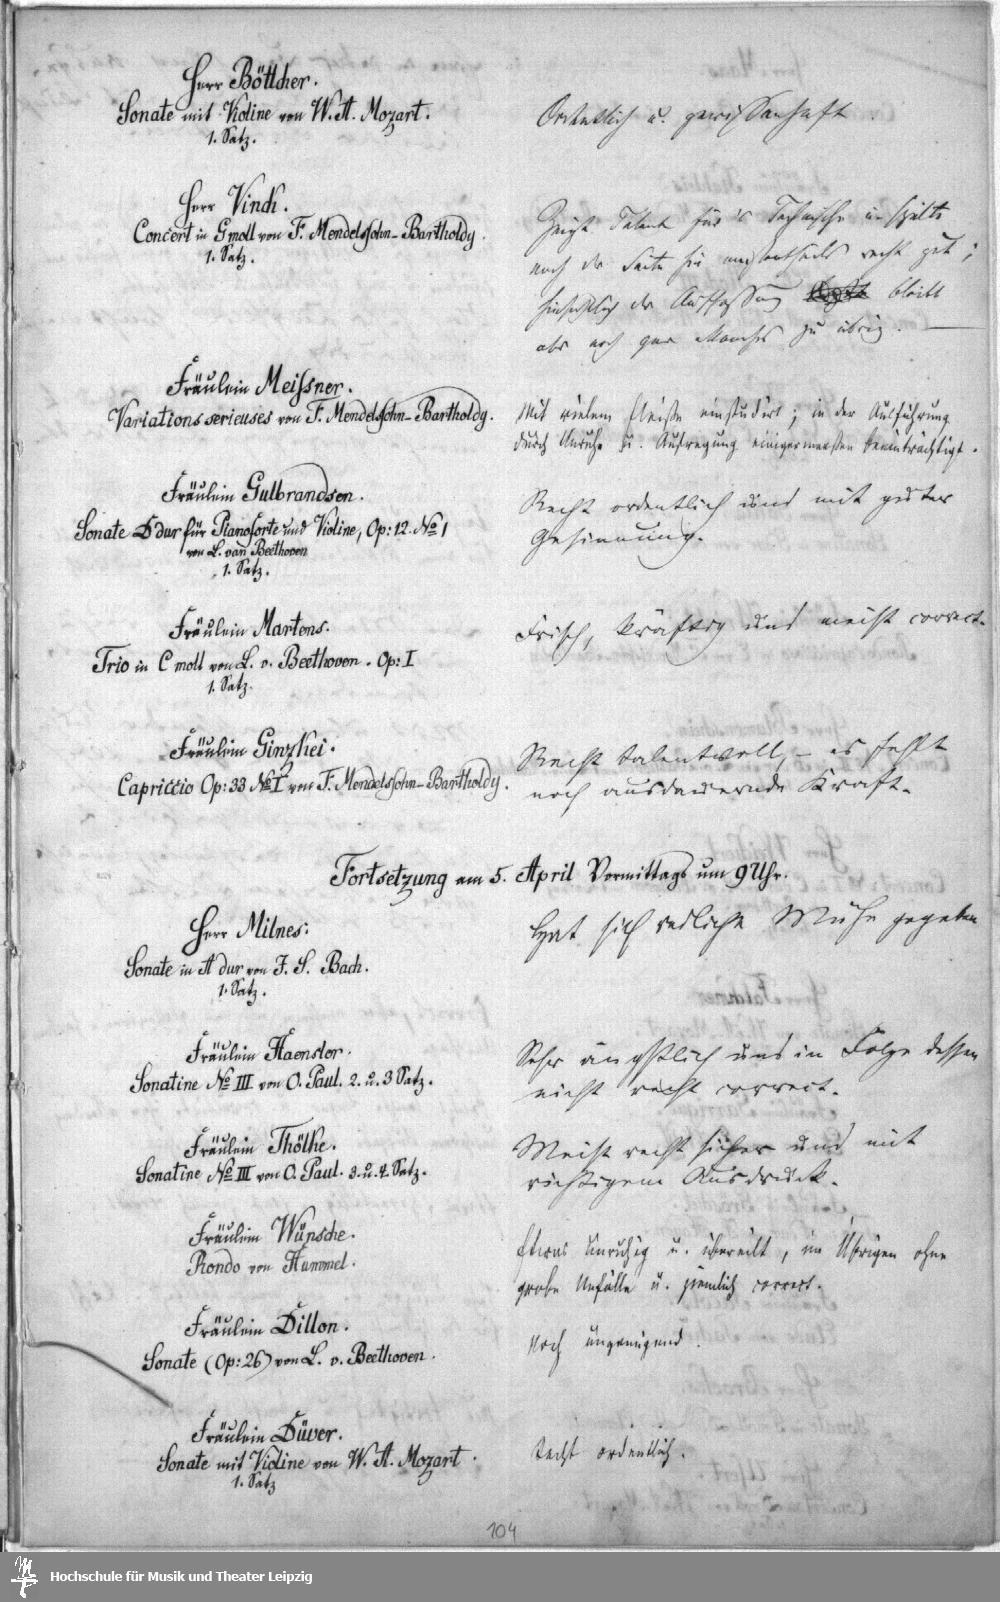 Herr Böttcher.
Sonate mit Violine von W. A. Mozart.
1. Satz.
Ordentlich u. gewissenhaft.
Herr Vinck.
Concert in G moll von F. Mendelssohn-Bartholdy.
1. Satz.
Zeigt Talent für's Technische u. spielte
nach der Seite hin recht gut;
hinsichtlich der Auffassung bleibt
aber noch gar Manches zu übrig.
Fräulein Meissner.
Variations serieuses von F. Mendelssohn-Bartholdy.
Mit vielem Fleisse einstudirt; in der Ausführung
durch Unruhe u. Aufregung einigermassen beeinträchtigt.
Fräulein Gulbrandsen.
Sonate D dur für Pianoforte und Violine, Op: 12. No 1
von L. van Beethoven
1. Satz.
Recht ordentlich und mit guter
Gesinnung.
Fräulein Martens.
Trio in C moll von L. v. Beethoven. Op: I
1. Satz.
Frisch, kräftig und meist correct.
Fräulein Ginzkei.
Capriccio Op: 33 No I von F. Mendelssohn-Bartholdy.
Recht talentvoll, - es fehlt
noch ausdauernde Kraft.
Fortsetzung am 5. April Vormittags um 9 Uhr.
Herr Milnes:
Sonate in A dur von J. S. Bach.
1. Satz.
Hat sich redliche Mühe gegeben
Fräulein Haensler.
Sonatine No III von O. Paul. 2. u. 3 Satz.
Sehr ängstlich und in Folge dessen
nicht recht correct.
Fräulein Thölke.
Sonatine No III von O. Paul. 3. u. 4. Satz.
Meist recht sicher und mit
richtigem Ausdruck.
Fräulein Wünsche.
Rondo von Hummel.
Etwas unruhig u. übereilt, im Übrigen ohne
grobe Unfälle u. ziemlich correct.
Fräulein Dillon.
Sonate (Op: 26) von L. v. Beethoven.
Noch ungenügend.
Fräulein Düver.
Sonate mit Violine von W. A. Mozart.
1. Satz
Recht ordentlich.
104
Hochschule für Musik und Theater Leipzig